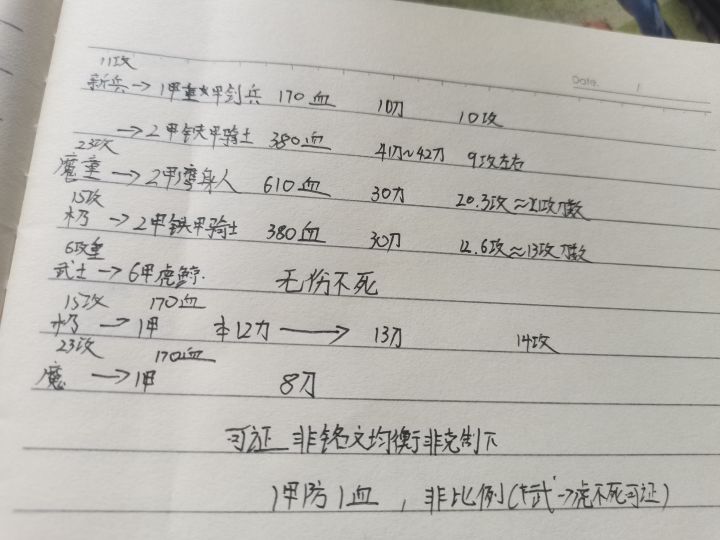 Date. 1
11攻
新兵→1甲重甲剑兵 170血 10攻
→2甲铁甲骑士 380血 41刀~42刀 9攻左右
23攻
魔童→2甲湾身人 610血 30刀 20.3攻≈21攻刀数
15攻
木乃→2甲铁甲骑士 380血 30刀 12.6攻≈13攻刀数
6攻重
武士→6甲虎鲸 无伤不死
15攻 170血
木乃→1甲 本12刀→13刀 14攻
23攻 170血
魔→1甲 8刀
可证 非铭文均衡非克制下
1甲防1血，非比例(武→虎不死可证)